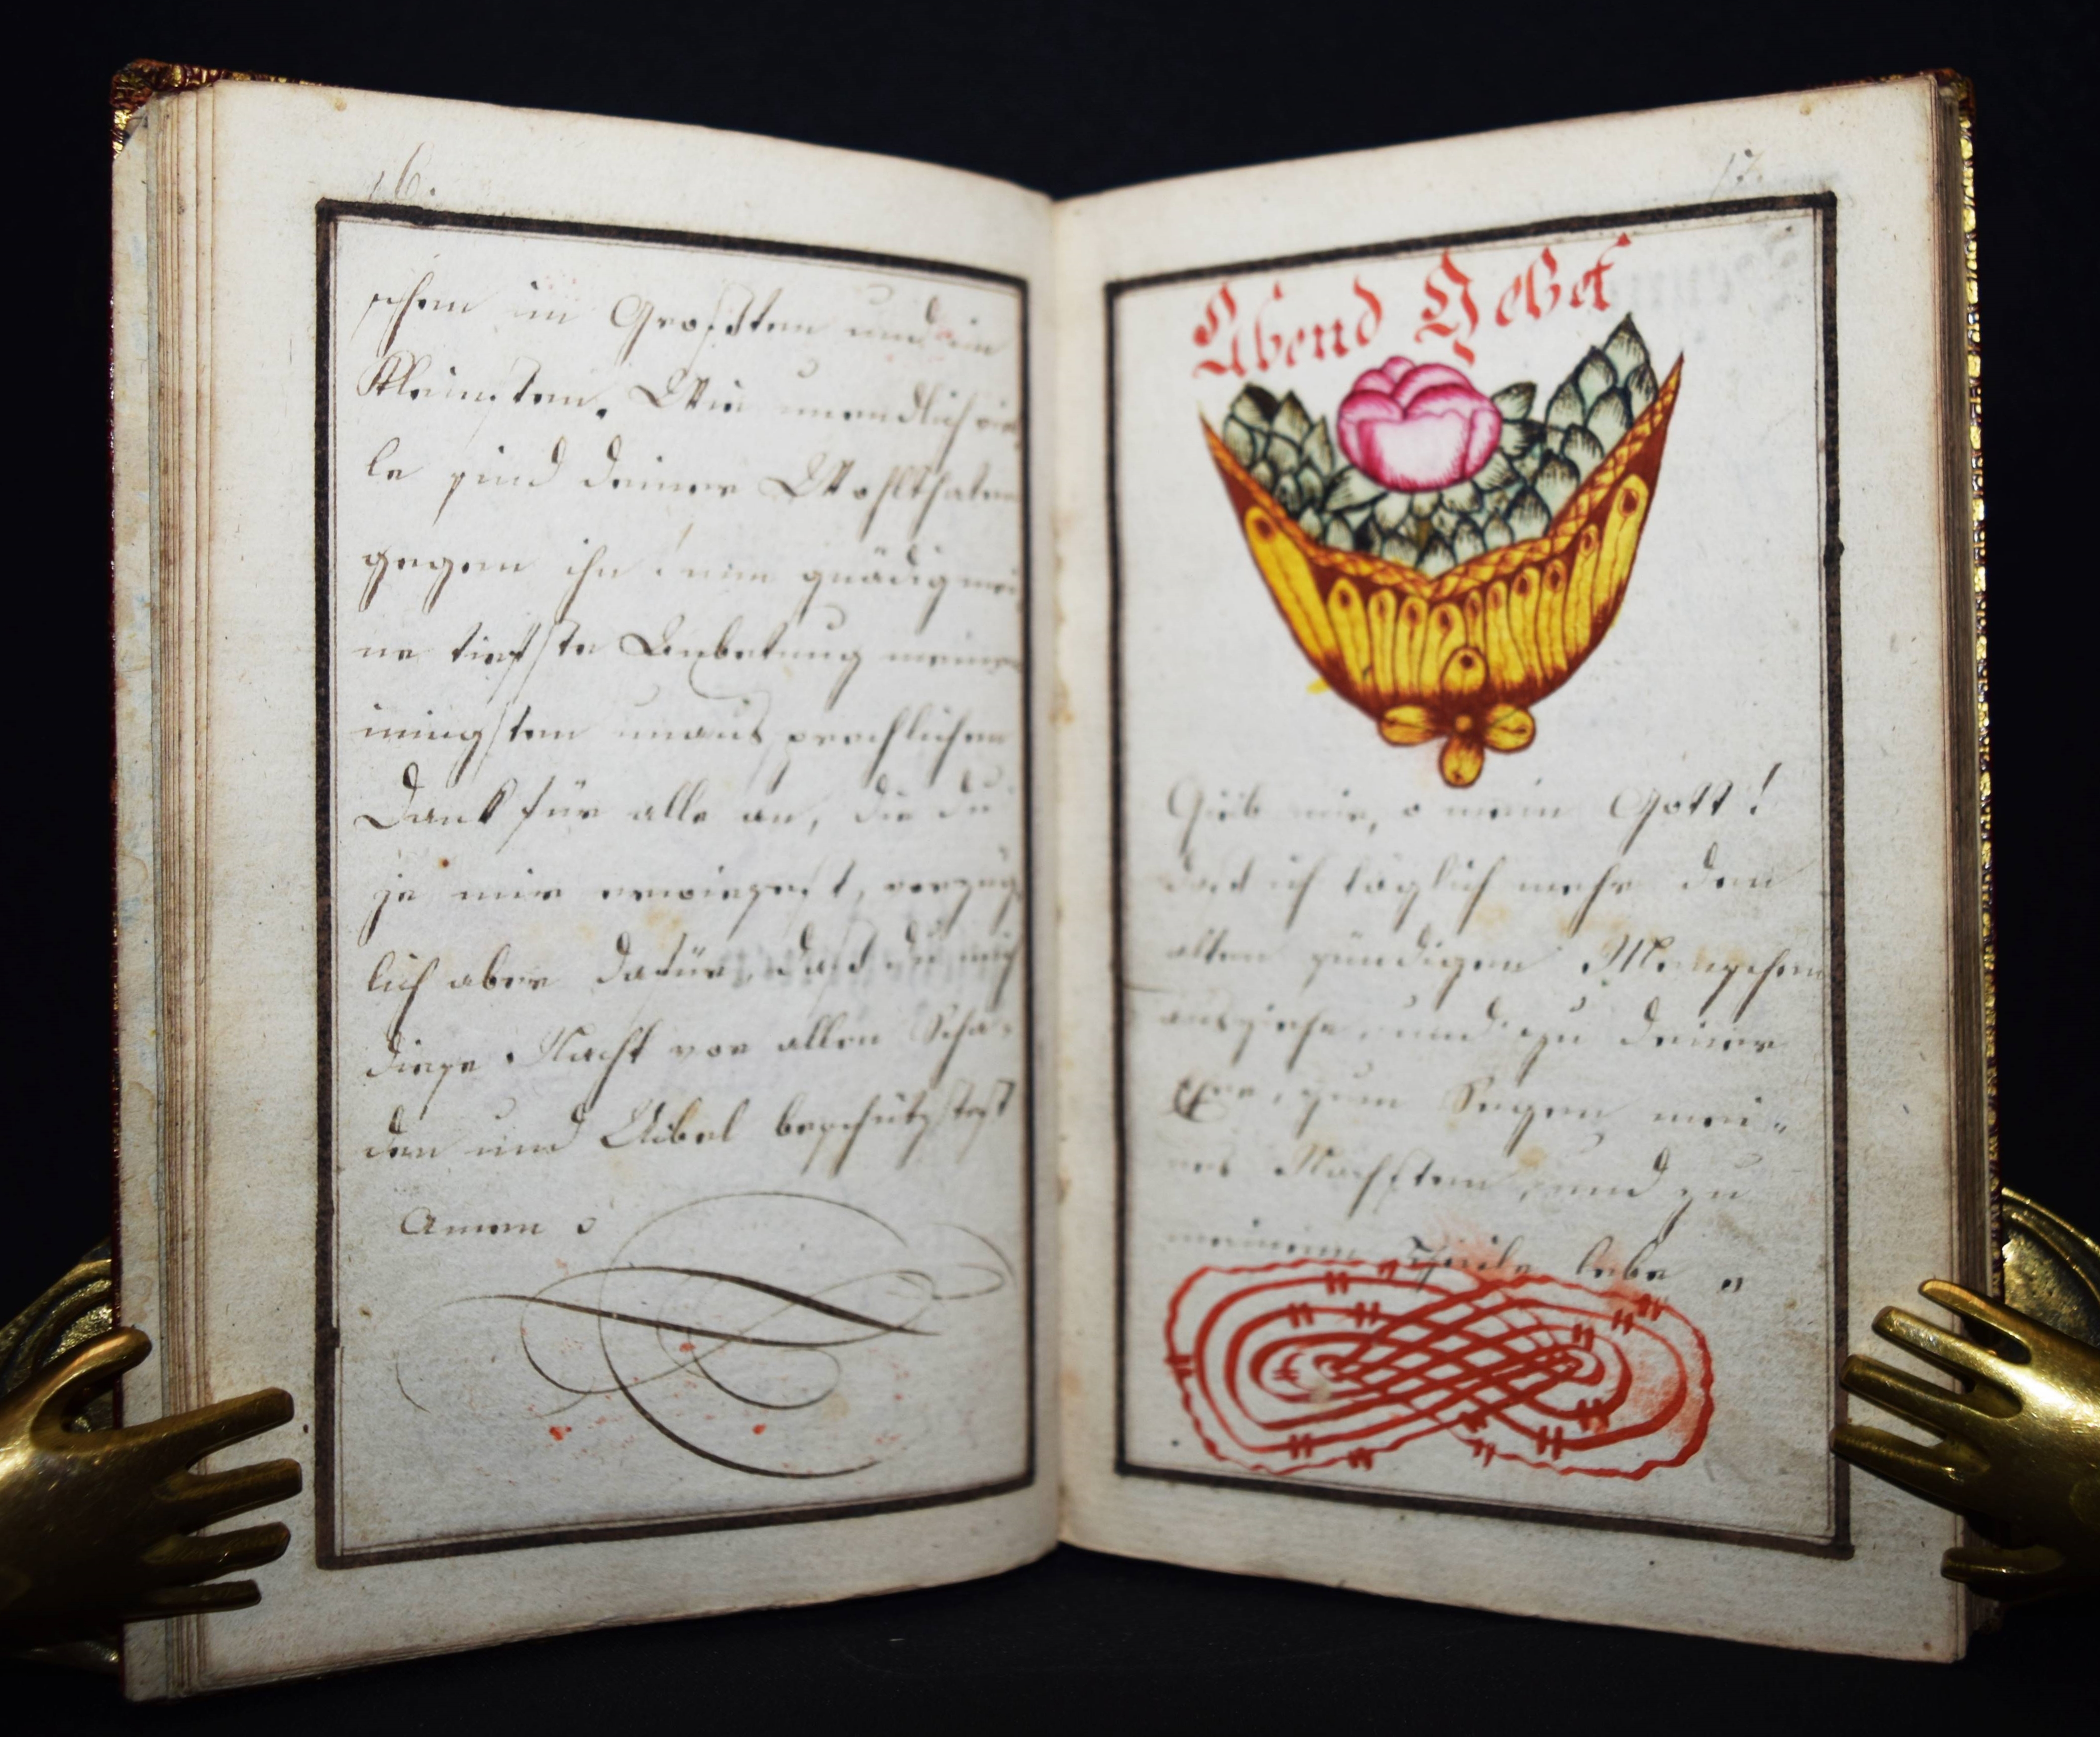 16.
schen im Grossten und im
Kleinsten. Wie unendlich vie
le sind deiner Wohlthaten
gegen ihn! nim gnädig mei
ne tiefste Anbetung meinen
innigsten unaus sprechlichen
Dank für alle an, die du
je mir erwiesest, vorzüg
lich aber dafür, dass du mich
diese Nacht vor allen Scha-
den und Uibel beschützstest
Amen
17.
Abend Gebet
Gieb mir, o mein Gott!
dass ich täglich mehr den
alten sündigen Menschen
ausziehe, und zu deiner
Ere, zum Segen mei„
nes Nächsten, und zu
meinem Heile lebe „